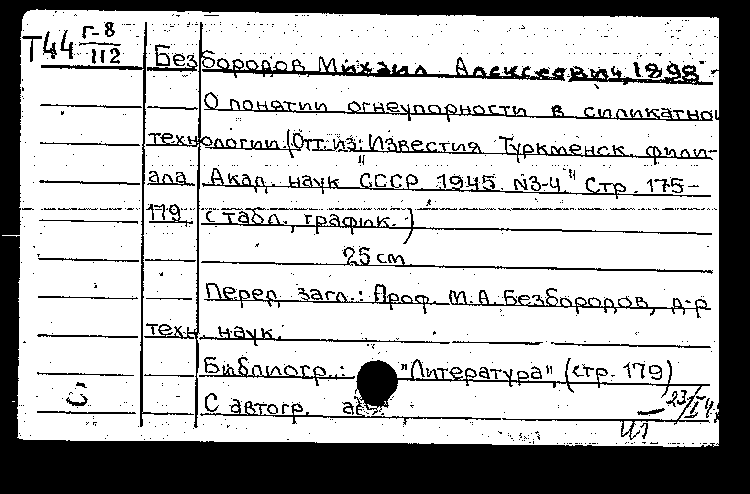 Т44 Г-8/112
Безбородов Михаил Алексеевич, 1898-
О понятии огнеупорности в силикатной
технологии (Отт. из: Известия Туркменск. фили-
ала Акад. наук "СССР. 1945. N3-4." Стр. 175-
179 с табл., график.)
25 см
Перед загл.: Проф. М.А. Безбородов, д-р
техн. наук.
Библиогр.: "Литература", (стр. 179)
С автогр.